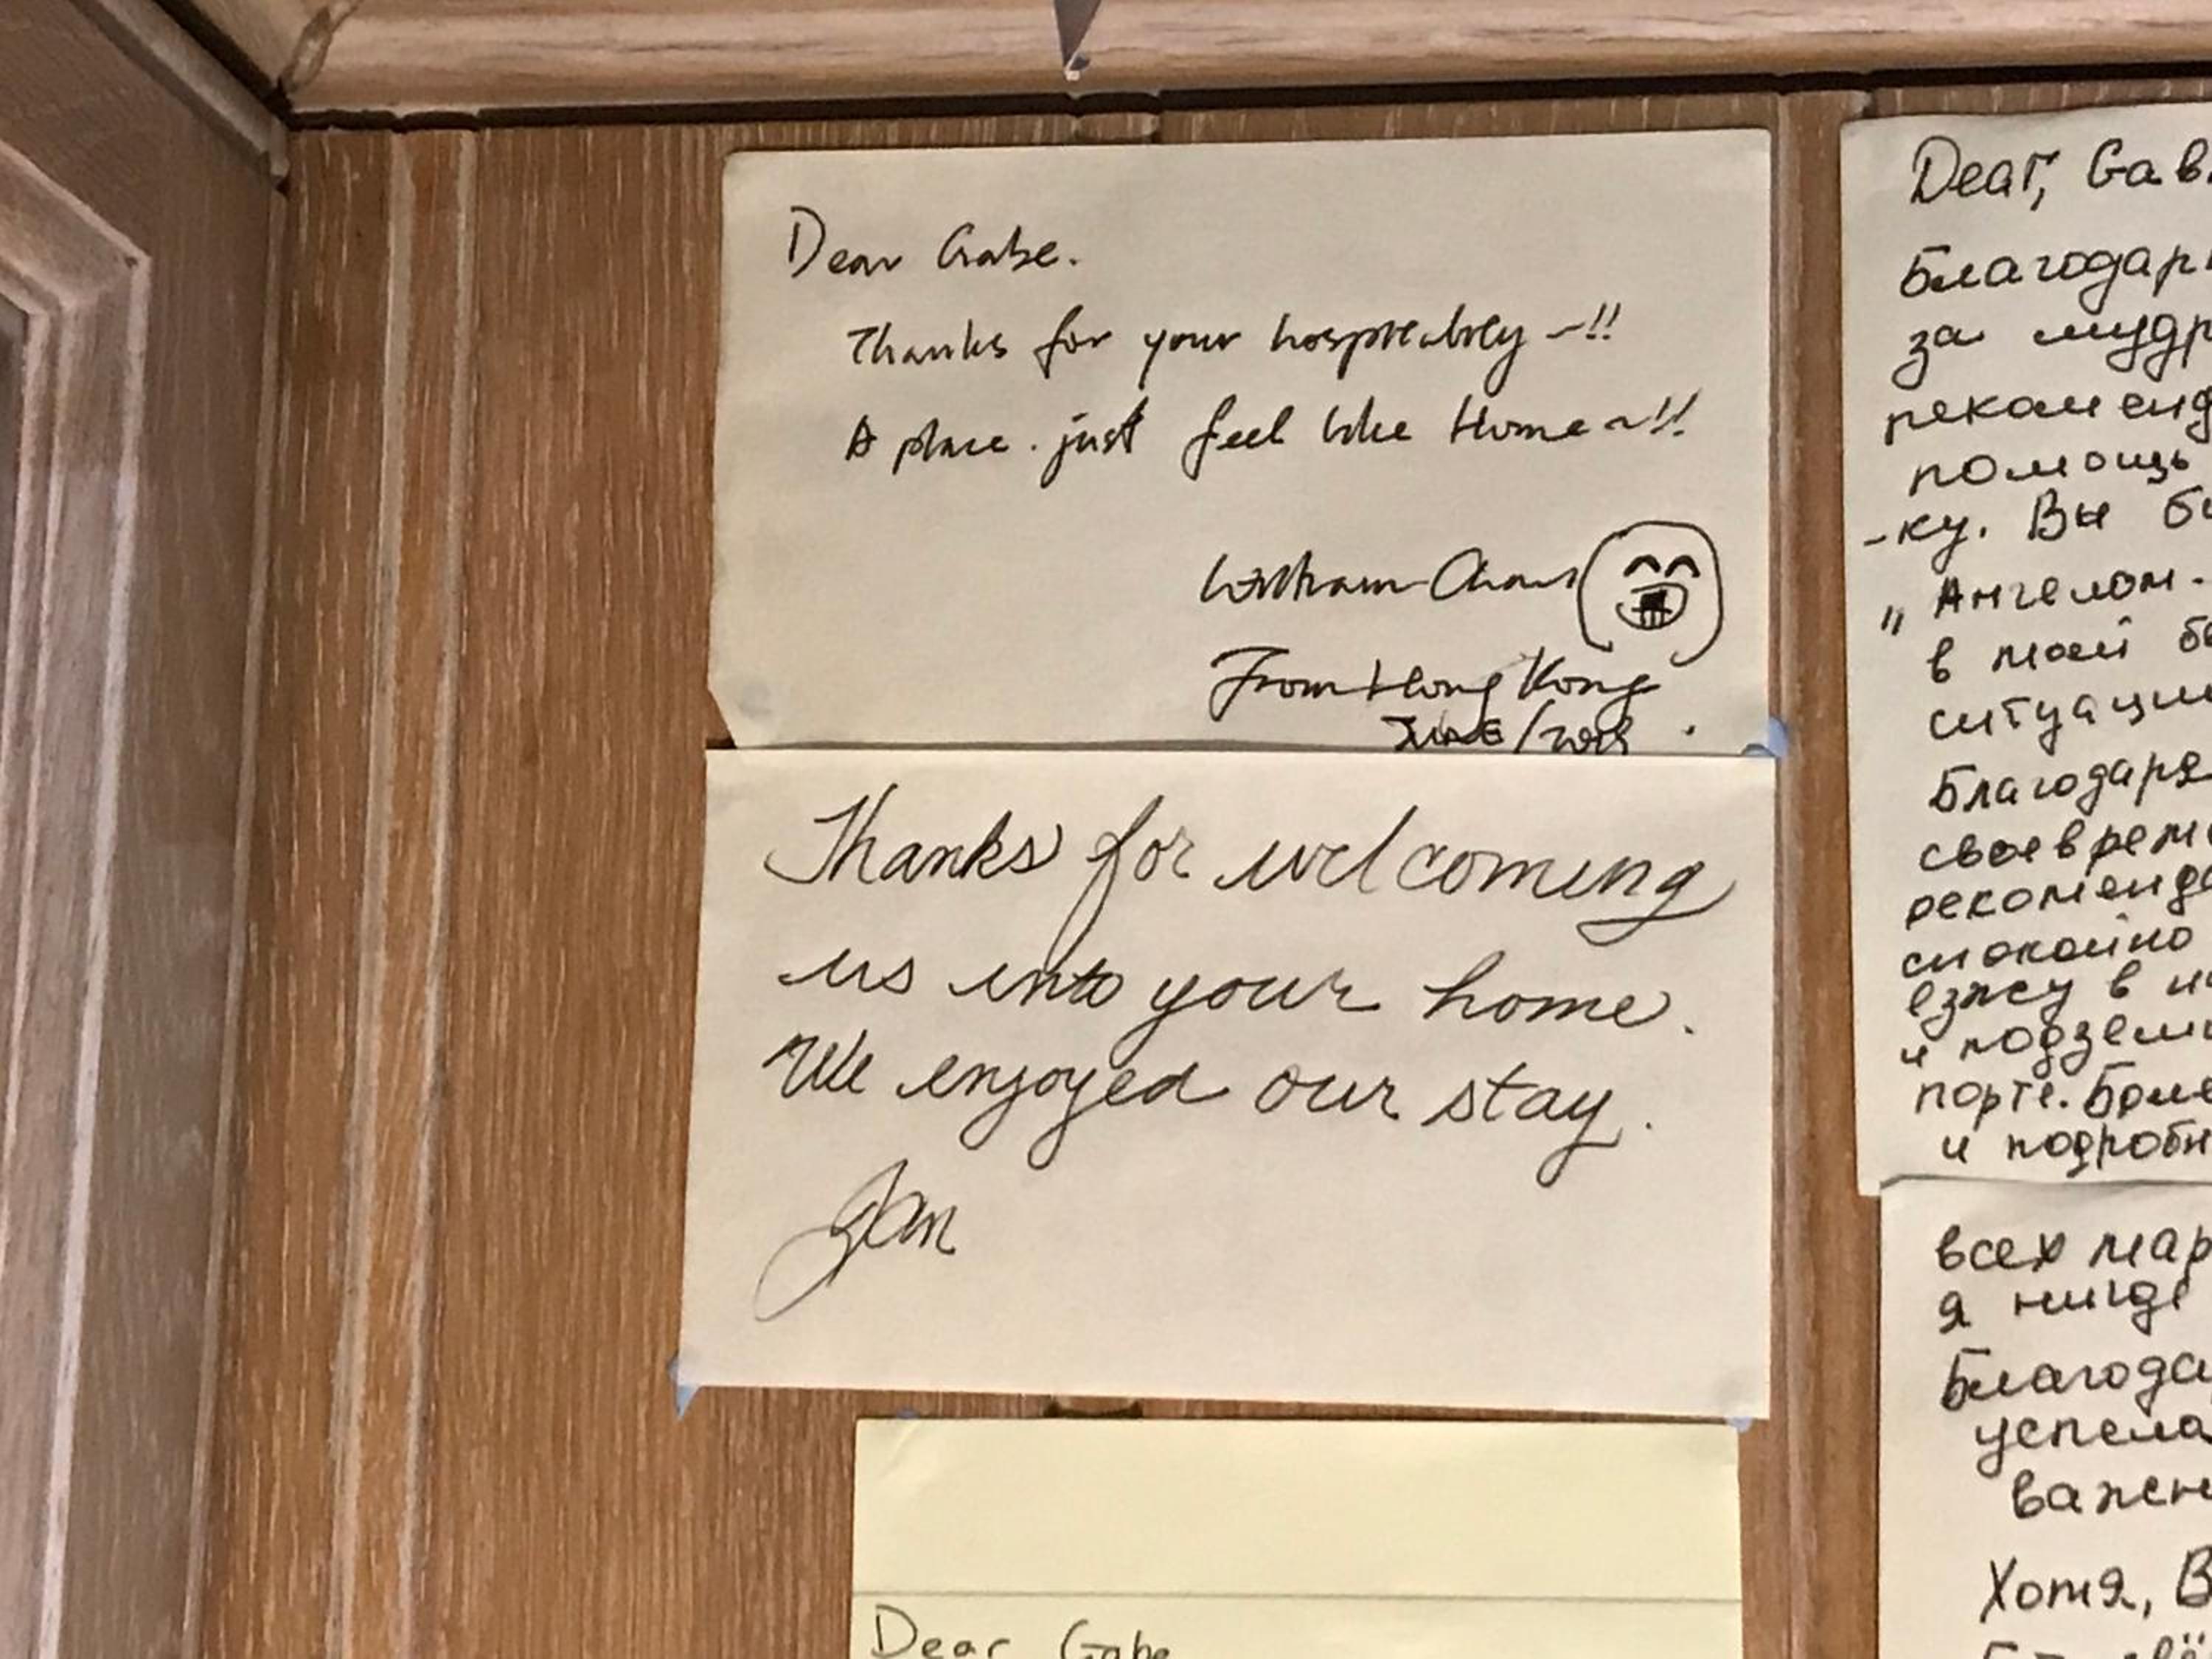 Dear Gabe.
Thanks for your hospitality ~!!
A place. just feel like Home ~!!
William Chan
From Hong Kong
June / 2018
Thanks for welcoming
us into your home.
We enjoyed our stay.
Jan
Dear Gabe
Dear, Gab
Благодар
за мудр
рекоменд
помощь
-ку. Вы
"Ангелом
в моей
ситуаци
Благодаря
своеврем
рекоменда
спокойно
езжу в
и подзем
порте. Боле
и подробн
всех мар
я нигде
Благода
успела
важен
Хотя, В